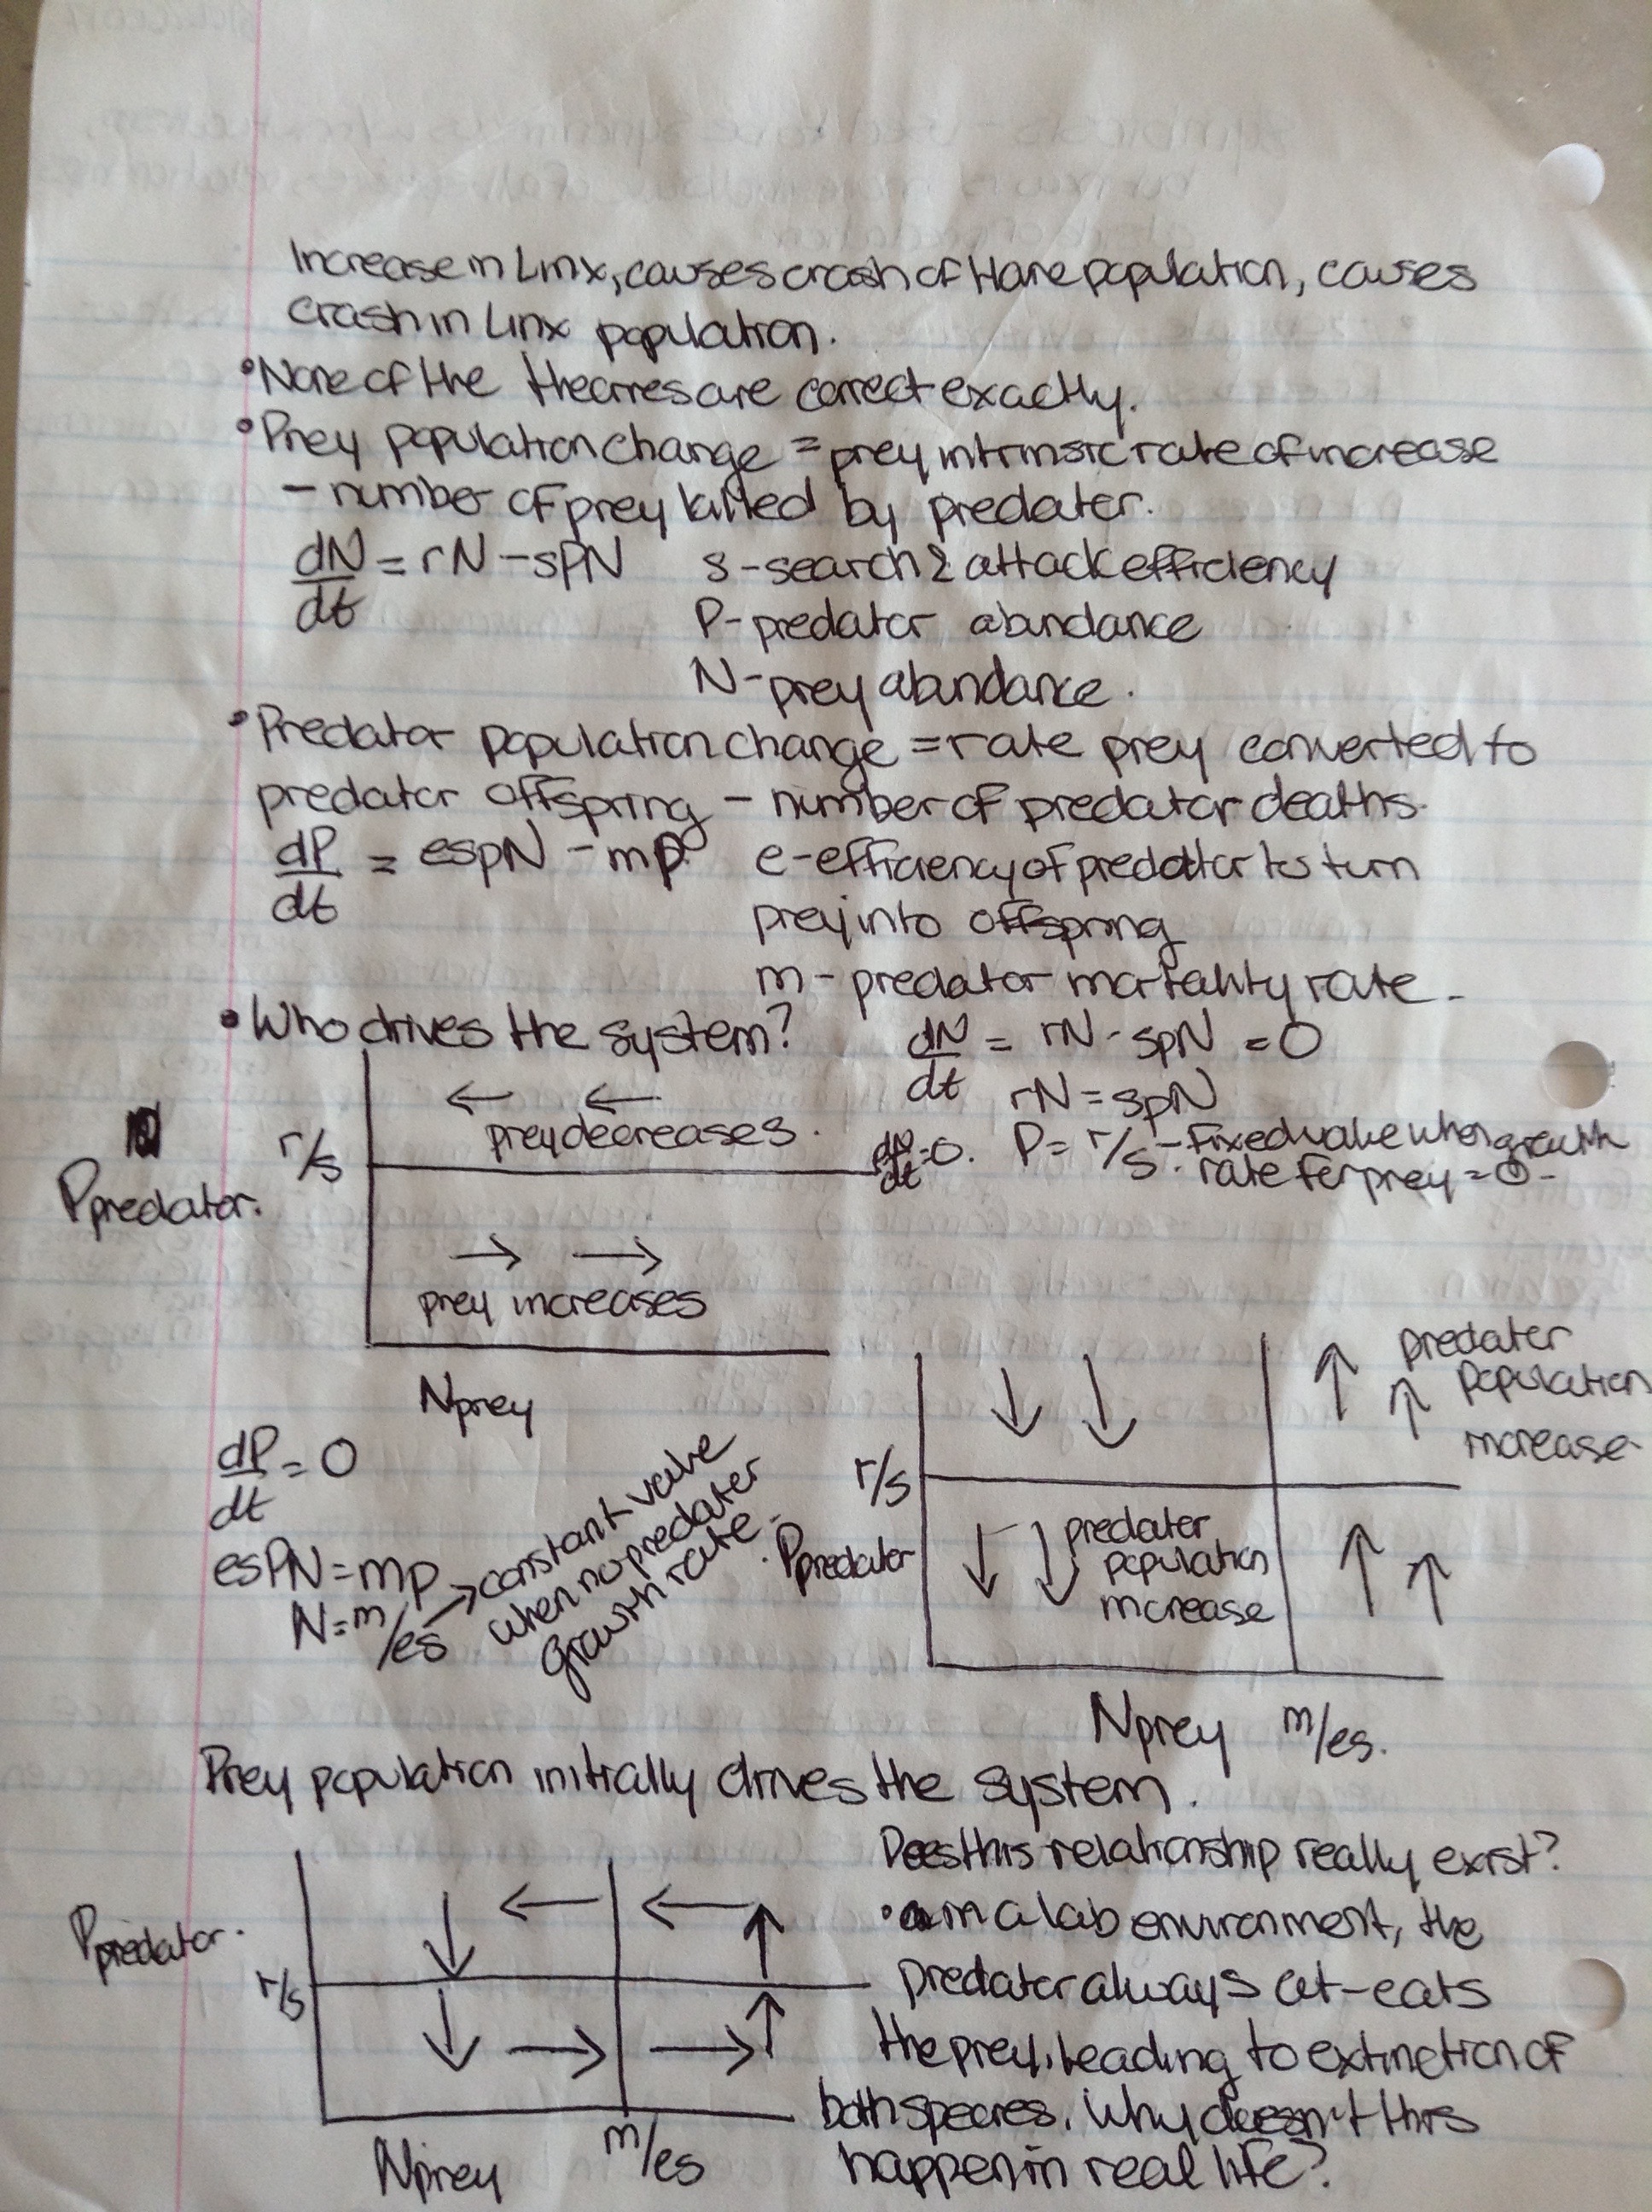 Increase in Linx, causes crash of Hare population, causes
crash in Linx population.
• None of the theories are correct exactly.
• Prey population change = prey intrinsic rate of increase
- number of prey killed by predater.
dN/dt = rN - sPN   s - search & attack efficiency
P - predator abundance
N - prey abundance.
• Predator population change = rate prey converted to
predator offspring - number of predator deaths.
dP/dt = espN - mp   e - efficiency of predator to turn
prey into offspring
m - predator mortality rate.
• Who drives the system?
dN/dt = rN - spN = 0
rN = spN
P = r/s. - Fixed value when growth
rate for prey = 0.
← ←
prey decreases.
r/s
dN/dt = 0.
Ppredator.
→ →
prey increases
Nprey
dP/dt = 0
espN = mp
N = m/es → constant value
when no predater
growth rate.
↓ ↓
↑ ↑ predater
population
increase
r/s
Ppredater
↓ ↓ predater
population
increase
↑ ↑
Nprey m/es.
Prey population initially drives the system.
Ppredator.
↓ ← ← ↑
r/s
↓ → → ↑
Nprey m/es
Does this relationship really exist?
• in a lab environment, the
predater always out-eats
the prey, leading to extinction of
both species. Why doesn't this
happen in real life?